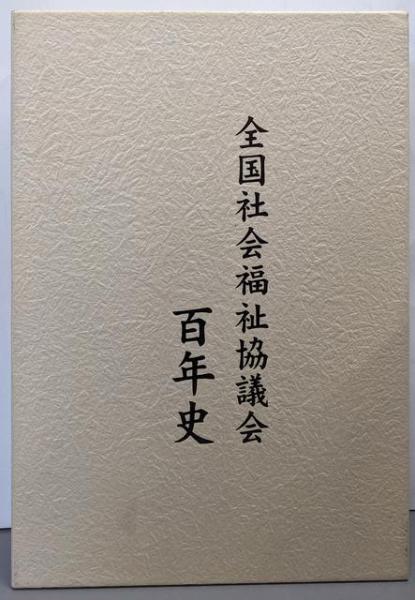 全国社会福祉協議会
百年史